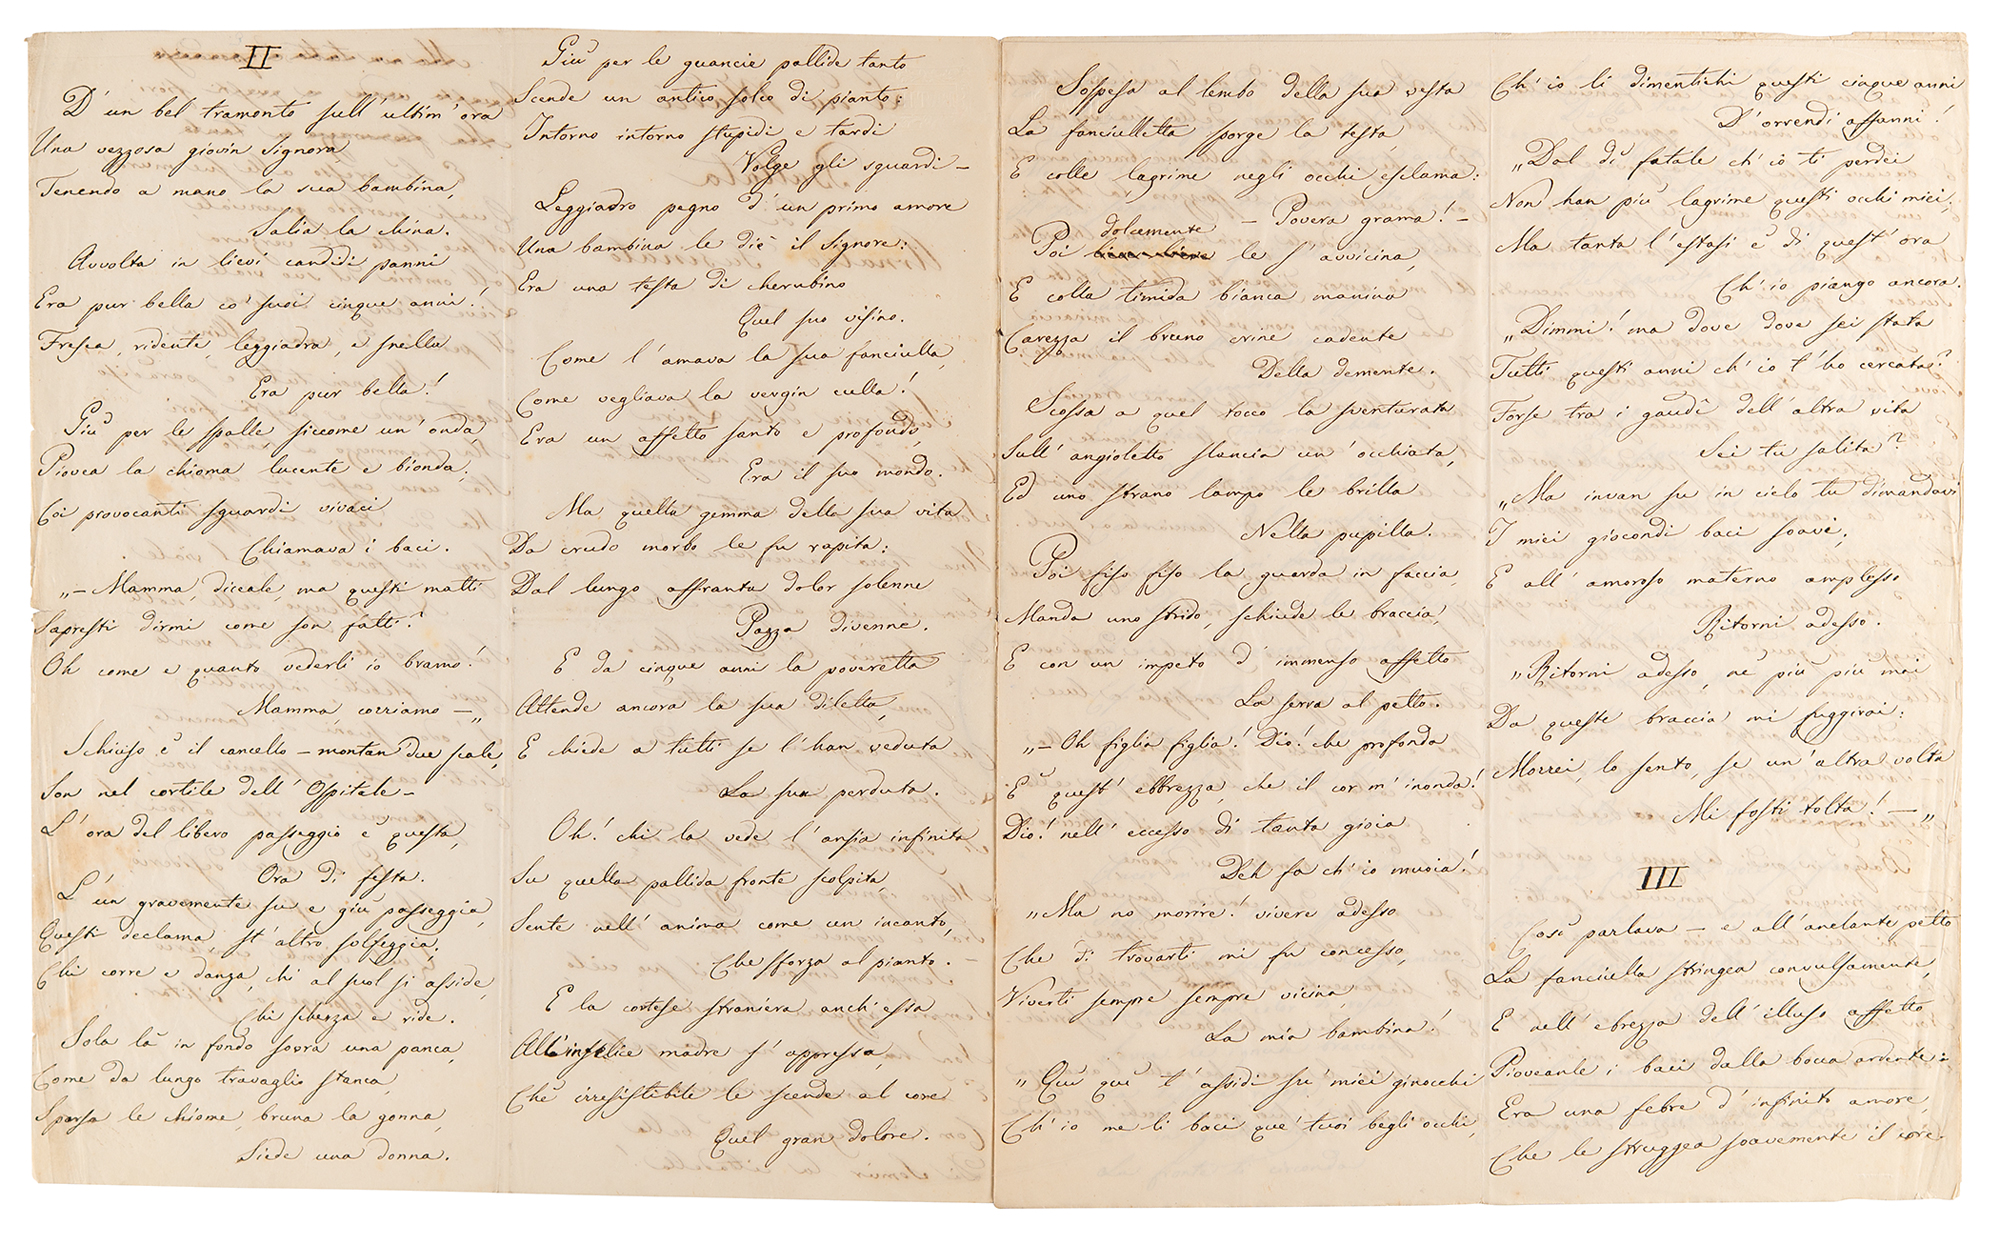 II
D'un bel tramonto sull' ultim' ora
Una vezzosa giovin signora,
Tenendo a mano la sua bambina,
Salia la china.
Avvolta in lievi candidi panni
Era pur bella co' suoi cinque anni!
Fresca, ridente, leggiadra, e snella
Era pur bella!
Giù per le spalle, siccome un' onda,
Piovea la chioma lucente e bionda;
Coi provocanti sguardi vivaci
Chiamava i baci.
„— Mamma, diceale, ma questi matti
Sapresti dirmi come son fatti?
Oh come e quanto vederli io bramo!
Mamma, corriamo —„
Schiuso è il cancello — montan due scale,
Son nel cortile dell' Ospitale —
L' ora del libero passeggio è questa,
Ora di festa.
L' un gravemente su e giù passeggia,
Questi declama, st' altro solfeggia;
Chi corre e danza, chi al suol si asside,
Chi scherza e ride.
Sola là in fondo sovra una panca,
Come da lungo travaglio stanca,
Sparsa le chiome, bruna la gonna,
Siede una donna.
Giù per le guancie pallide tanto
Scende un antico solco di pianto:
Intorno intorno stupidi e tardi
Volge gli sguardi —
Leggiadro pegno d' un primo amore
Una bambina le diè il Signore:
Era una testa di cherubino
Quel suo visino.
Come l' amava la sua fanciulla,
Come vegliava la vergin culla!
Era un affetto santo e profondo,
Era il suo mondo.
Ma quella gemma della sua vita
Da crudo morbo le fu rapita:
Dal lungo affranta dolor solenne
Pazza divenne.
E da cinque anni la poveretta
Attende ancora la sua diletta,
E chiede a tutti se l' han veduta
La sua perduta.
Oh! chi la vede l' ansia infinita
Su quella pallida fronte scolpita,
Sente nell' anima come un incanto,
Che sforza al pianto.
E la cortese straniera anch' essa
All' infelice madre s' appressa,
Chè irresistibile le scende al core
Quel gran dolore.
Sospesa al lembo della sua vesta
La fanciulletta sporge la testa,
E colle lagrime negli occhi esclama:
— Povera grama! —
dolcemente
Poi le s' avvicina,
E colla timida bianca manina
Carezza il bruno crine cadente
Della demente.
Scossa a quel tocco la sventurata
Sull' angioletto slancia un' occhiata,
Ed uno strano lampo le brilla
Nella pupilla.
Poi fiso fiso la guarda in faccia,
Manda uno strido, schiude le braccia,
E con un impeto d' immenso affetto
La serra al petto.
„— Oh figlia figlia! Dio! che profonda
È quest' ebbrezza, che il cor m' inonda!
Dio! nell' eccesso di tanta gioia
Deh fa ch' io muoia!
„Ma no morire! vivere adesso
Che di trovarti mi fu concesso,
Viverti sempre sempre vicina,
La mia bambina!
„Quì quì t' assidi su' miei ginocchi
Ch' io me li baci que' tuoi begli occhi,
Ch' io li dimentichi questi cinque anni
D' orrendi affanni!
„Dal dì fatale ch' io ti perdei
Non han più lagrime questi occhi miei;
Ma tanta l' estasi è di quest' ora
Ch' io piango ancora.
„Dimmi! ma dove dove sei stata
Tutti questi anni ch' io t' ho cercata?
Forse tra i gaudî dell' altra vita
Sei tu salita?
„Ma invan su in cielo tu dimandavi
I miei giocondi baci soavi;
E all' amoroso materno amplesso
Ritorni adesso.
„Ritorni adesso, nè più più mai
Da queste braccia mi fuggirai:
Morrei, lo sento, se un' altra volta
Mi fosti tolta! —„
III
Così parlava — e all' anelante petto
La fanciulla stringea convulsamente,
E nell' ebrezza dell' illuso affetto
Pioveanle i baci dalla bocca ardente:
Era una febre d' infinito amore,
Che le struggea soavemente il core.